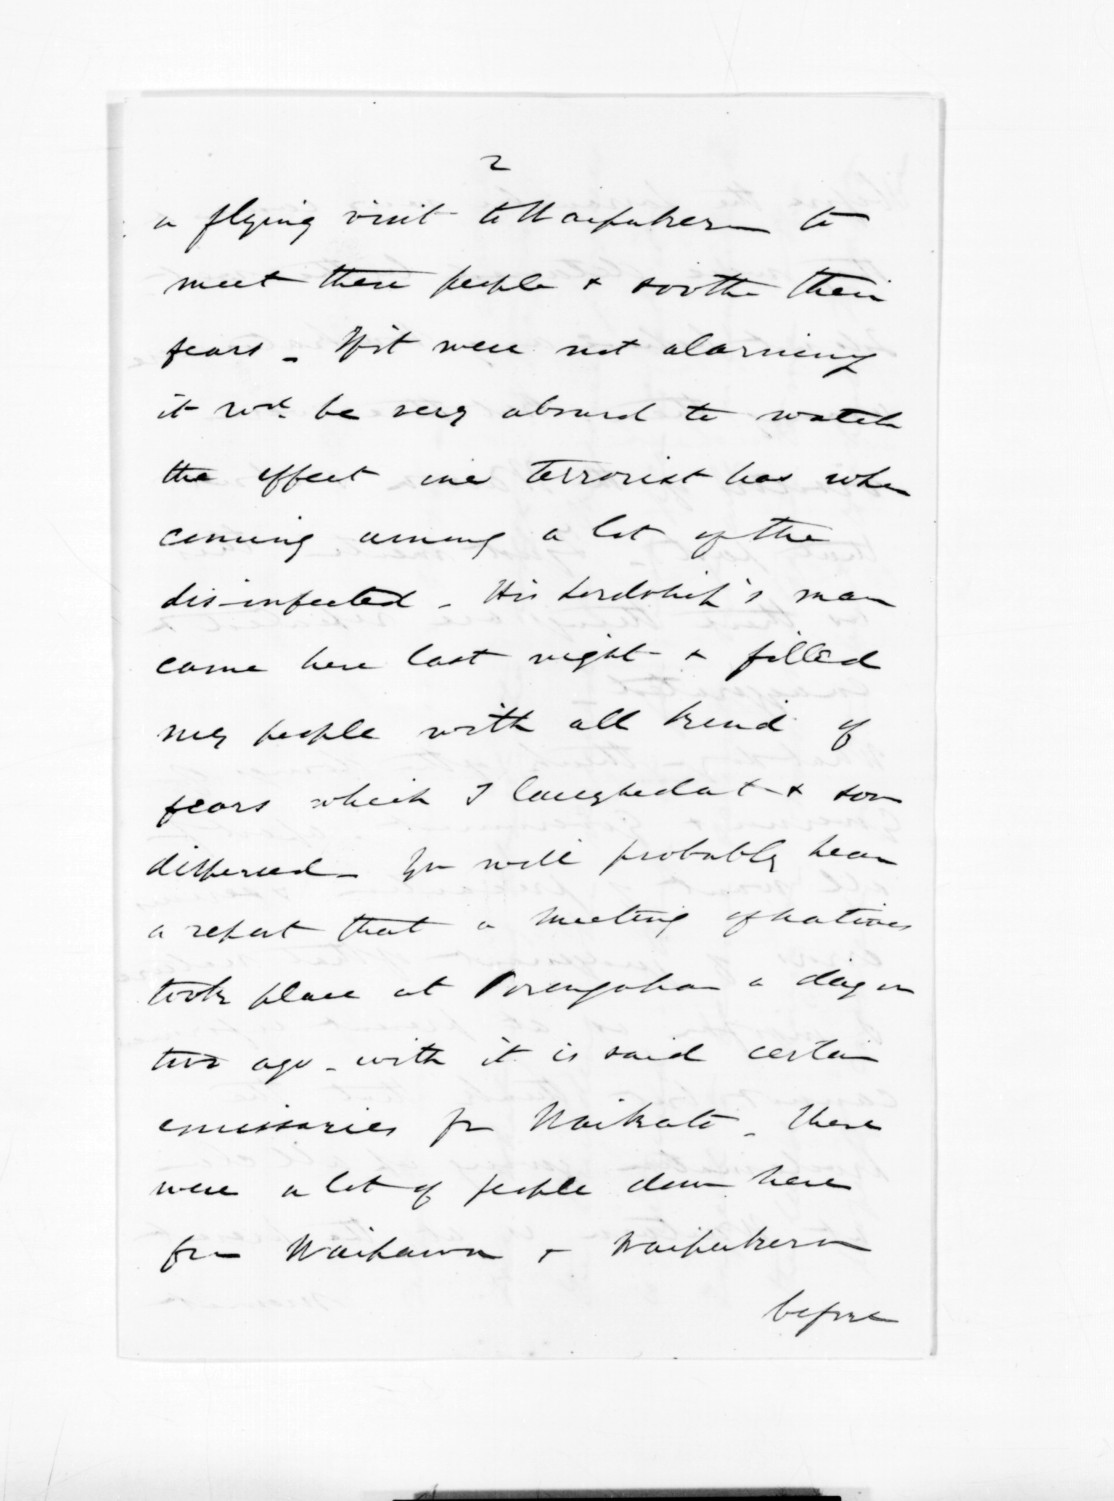 2
a flying visit to Waipukerau to
meet these people & soothe their
fears _ If it were not alarming
it wd. be very absurd to watch
the effect one terrorist has when
coming among a lot of the
dis-infected _ His Lordship's man
came here last night & filled
my people with all kind of
fears which I laughed at & soon
dispersed _ You will probably hear
a report that a meeting of natives
took place at Porangahau a day or
two ago _ with it is said certain
emissaries fm Waikato _ There
were a lot of people down here
from Waipawa & Waipukerau
before